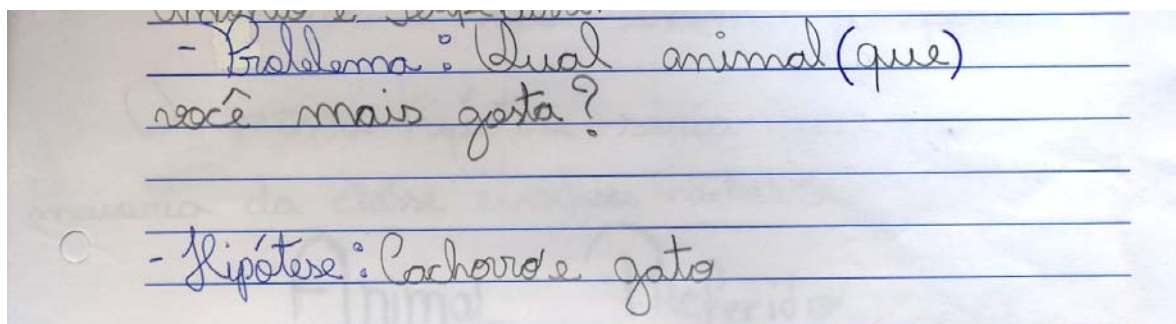 - Problema: Qual animal (que)
você mais gosta?
- Hipótese: Cachorro e gato